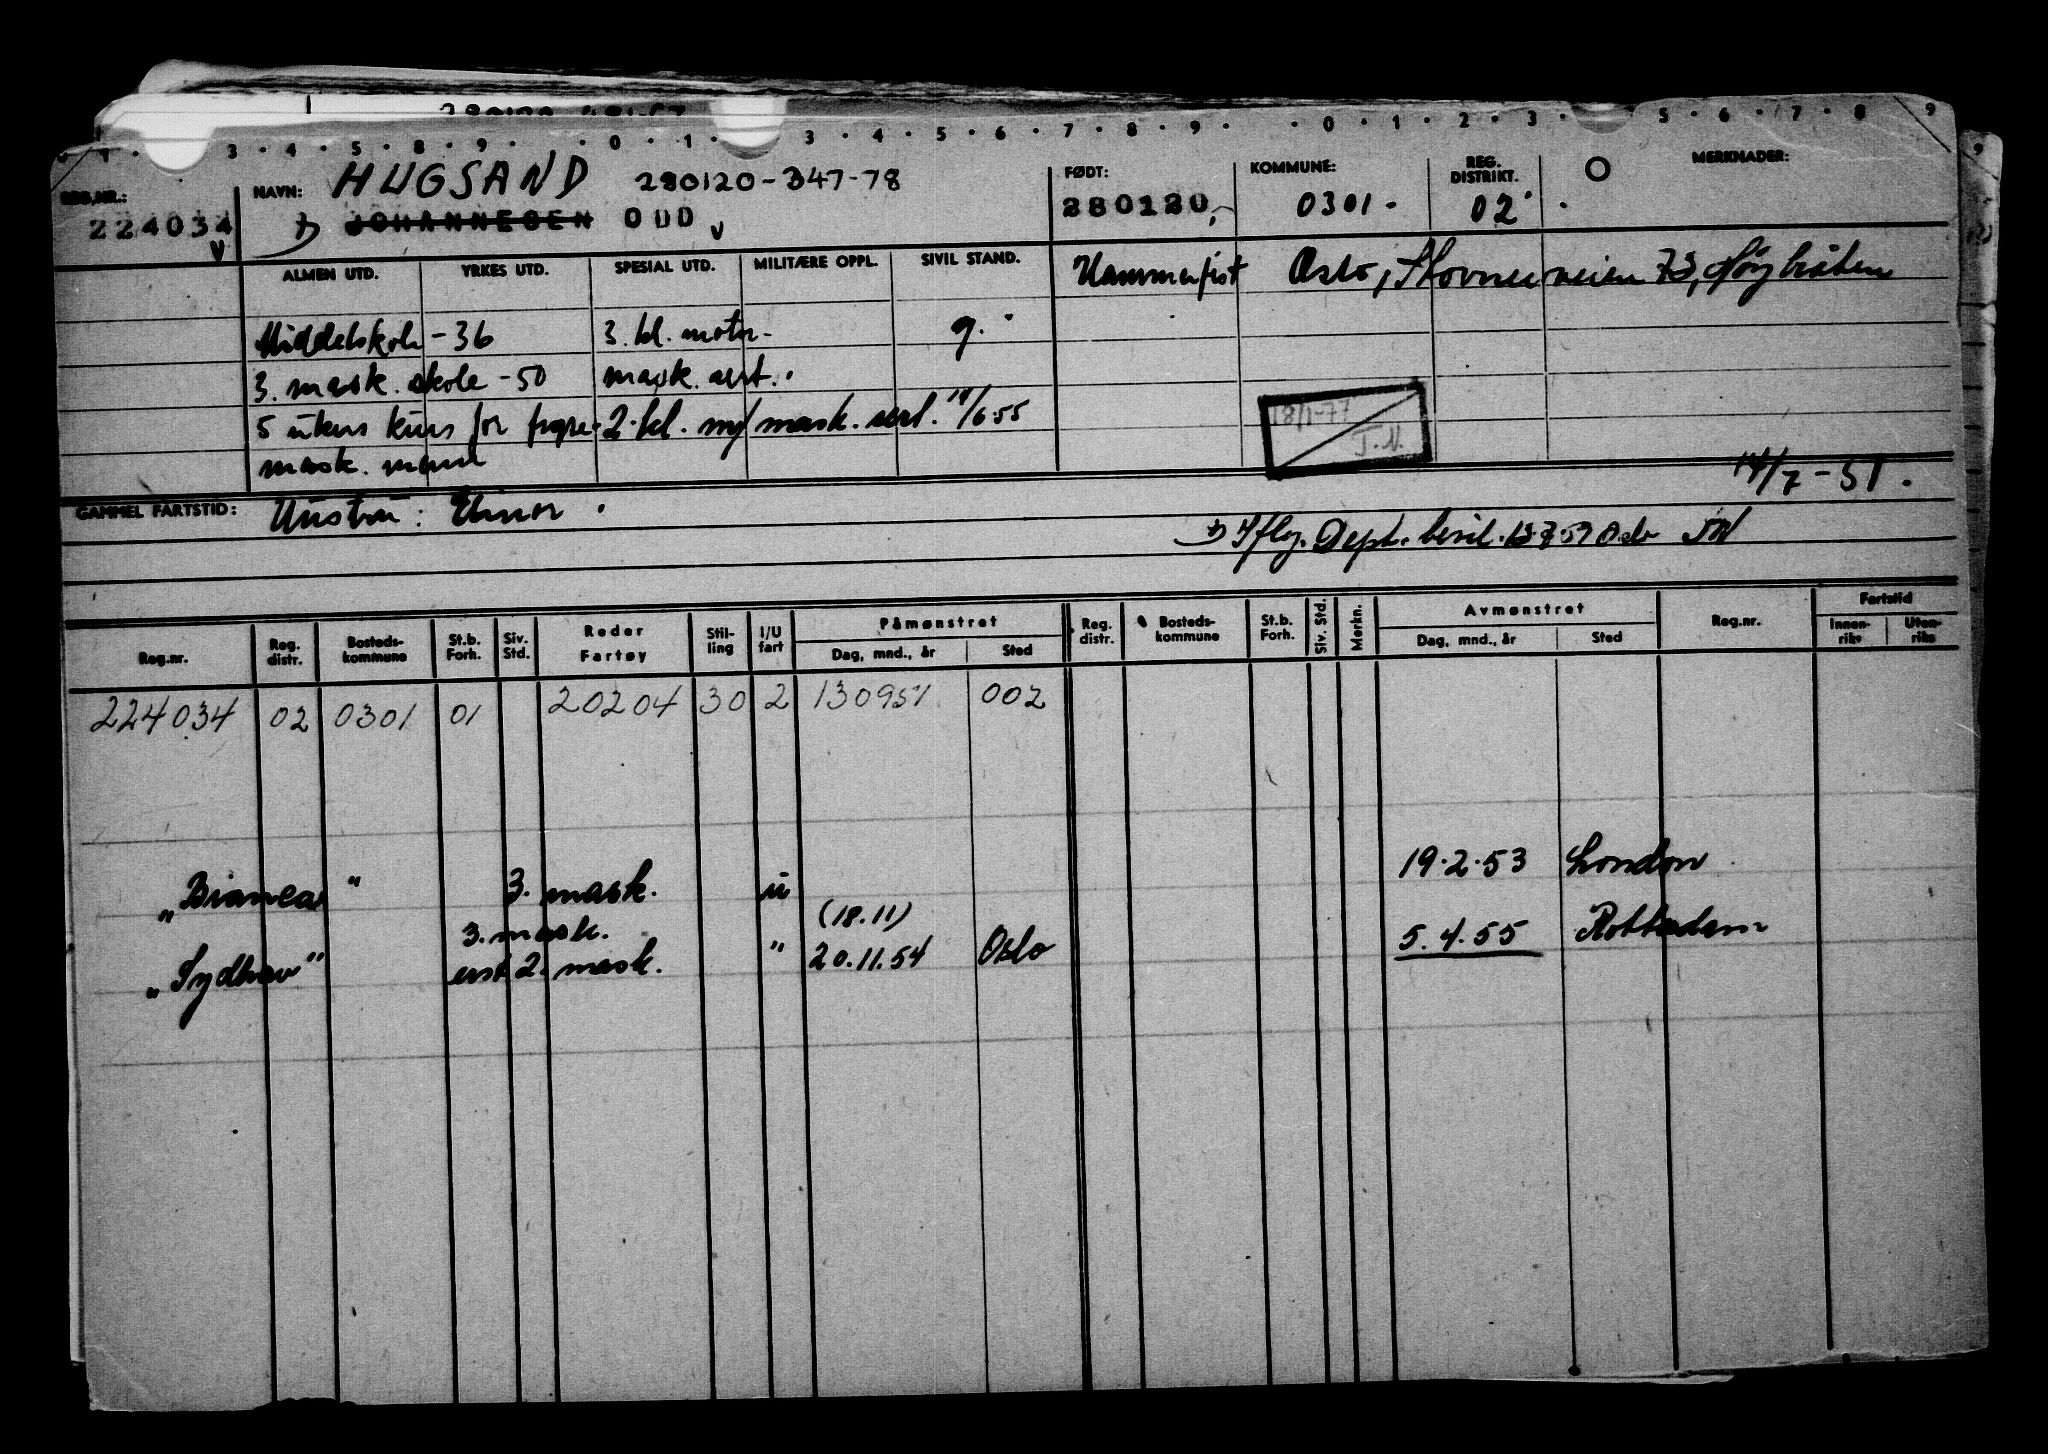 280120
3 · 4 · 5 · 8 · 9 · · 0 · 1 · 3 · 4 · 5 · 6 · 7 · 8 · 9 · · 0 · 1 · 2 · 3 · 5 · 6 · 7 · 8 9
REG.NR.: NAVN: HUGSAND 280120-347-78 FØDT: KOMMUNE: REG. DISTRIKT. O MERKNADER:
224034 JOHANNESEN ODD 280120 0301 - 02
ALMEN UTD. YRKES UTD. SPESIAL UTD. MILITÆRE OPPL. SIVIL STAND. Hammerfest Oslo, Stovnerveien 73, Høybråten
Middelskole -36 3. kl. motor- g.
3. mask. skole -50 mask. sert.
5 ukers kurs for 2. kl. m/ mask. sert. 6.55 18/1-77
mask. mann T.N.
14/7 - 51.
GAMMEL FARTSTID: Hustru: Elinor
Iflg. Dept. bevil. Oslo
Reg.nr. Reg. distr. Bosteds-kommune St.b. Forh. Siv. Std. Reder Fartøy Stil-ling I/U fart Påmønstret Dag, mnd., år Sted Reg. distr. Bosteds-kommune St.b. Forh. Siv. Std. Merkn. Avmønstret Dag, mnd., år Sted Reg.nr. Fartstid Innen-riks Uten-riks
224034 02 0301 01 20204 30 2 130951 002
„Bianca" 3. mask. u 19.2.53 London
3. mask. (18.11)
„Sydhav" 2. mask. " 20.11.54 Oslo 5.4.55 Rotterdam